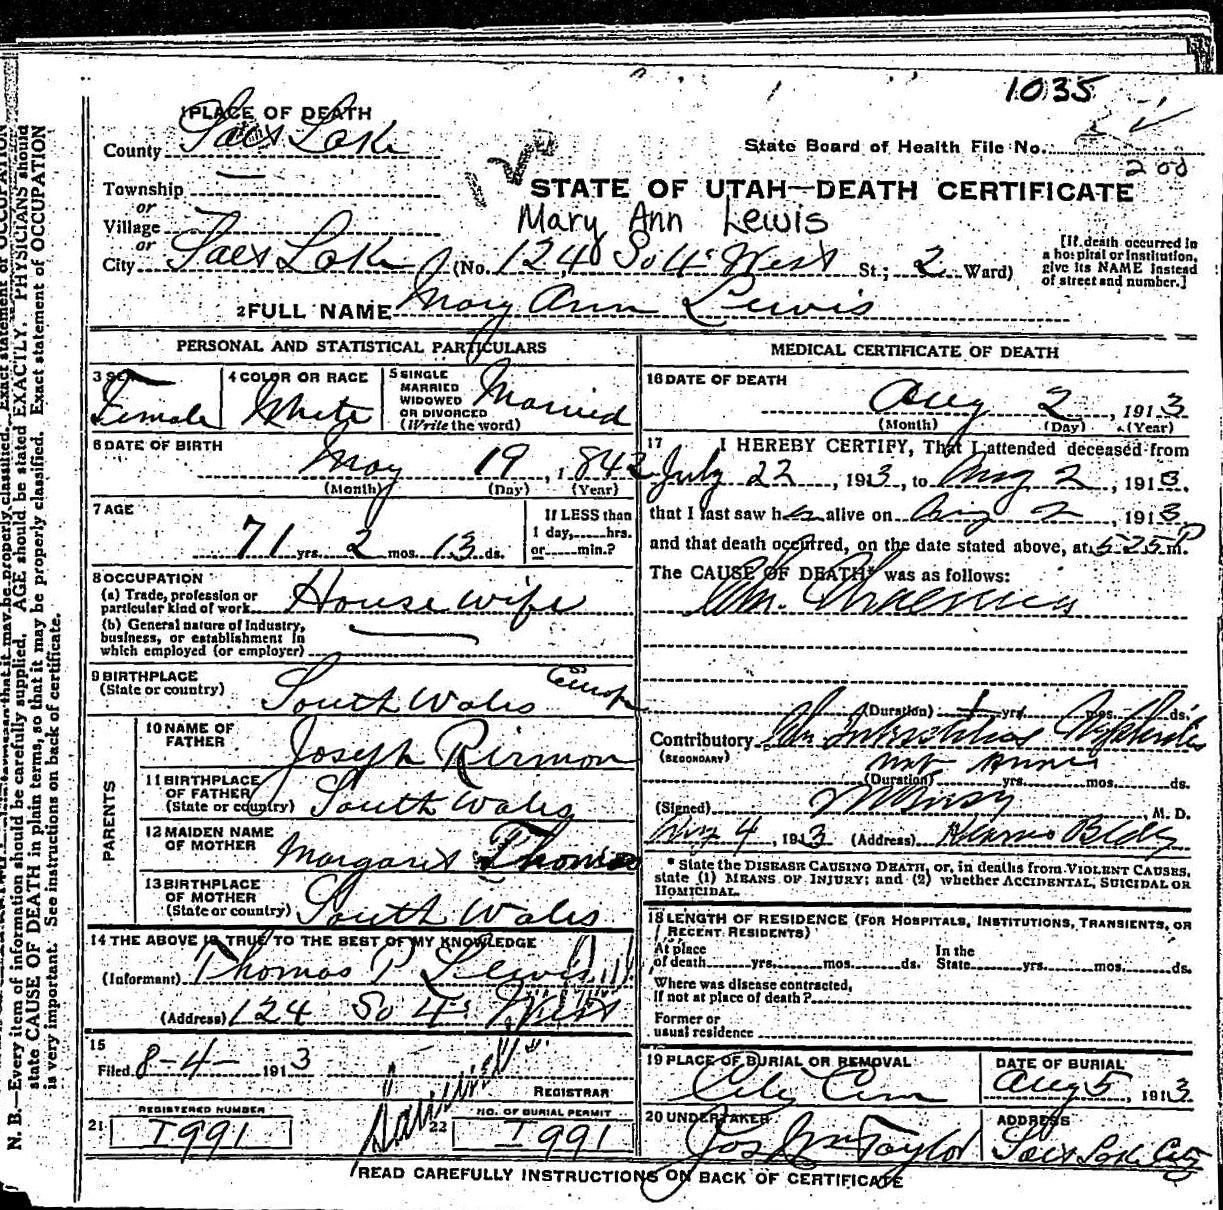 1035
1 PLACE OF DEATH
County Salt Lake
State Board of Health File No.
200
Township
or
STATE OF UTAH—DEATH CERTIFICATE
Village
Mary Ann Lewis
or
City Salt Lake (No. 124 So 4" West St.; 2 Ward)
[If death occurred in
a hospital or institution,
give its NAME instead
of street and number.]
2 FULL NAME Mary Ann Lewis
PERSONAL AND STATISTICAL PARTICULARS
3 SEX
Female
4 COLOR OR RACE
White
5 SINGLE
MARRIED
WIDOWED
OR DIVORCED
(Write the word)
Married
6 DATE OF BIRTH
May 19, 1842
(Month) (Day) (Year)
7 AGE
71 yrs. 2 mos. 13 ds.
If LESS than
1 day, hrs.
or min.?
8 OCCUPATION
(a) Trade, profession or
particular kind of work House wife
(b) General nature of Industry,
business, or establishment in
which employed (or employer)
9 BIRTHPLACE
(State or country) South Wales Europe
PARENTS
10 NAME OF
FATHER Joseph Rirmon
11 BIRTHPLACE
OF FATHER
(State or country) South Wales
12 MAIDEN NAME
OF MOTHER Margaret Thomas
13 BIRTHPLACE
OF MOTHER
(State or country) South Wales
14 THE ABOVE IS TRUE TO THE BEST OF MY KNOWLEDGE
(Informant) Thomas P Lewis
(Address) 124 So 4" West
15
Filed 8-4- 1913
REGISTRAR
REGISTERED NUMBER
21 1991
NO. OF BURIAL PERMIT
22 1991
MEDICAL CERTIFICATE OF DEATH
16 DATE OF DEATH
Aug 2, 1913
(Month) (Day) (Year)
17 I HEREBY CERTIFY, That I attended deceased from
July 22, 1913, to Aug 2, 1913,
that I last saw her alive on Aug 2, 1913,
and that death occurred, on the date stated above, at 5:25 P m.
The CAUSE OF DEATH* was as follows:
(Duration) yrs. mos. ds.
Contributory Chr Interstitial Nephritis
(SECONDARY)
(Duration) yrs. mos. ds.
(Signed) M. D.
Aug 4, 1913 (Address) Bldg
* State the DISEASE CAUSING DEATH, or, in deaths from VIOLENT CAUSES,
state (1) MEANS OF INJURY; and (2) whether ACCIDENTAL, SUICIDAL OR
HOMICIDAL.
18 LENGTH OF RESIDENCE (FOR HOSPITALS, INSTITUTIONS, TRANSIENTS, OR
RECENT RESIDENTS)
At place
of death yrs. mos. ds.
In the
State yrs. mos. ds.
Where was disease contracted,
If not at place of death?
Former or
usual residence
19 PLACE OF BURIAL OR REMOVAL
City Cem
DATE OF BURIAL
Aug 5, 1913
20 UNDERTAKER
Jos Wm Taylor
ADDRESS
Salt Lake City
READ CAREFULLY INSTRUCTIONS ON BACK OF CERTIFICATE
N. B.—Every item of information should be carefully supplied. AGE should be stated EXACTLY. PHYSICIANS should
state CAUSE OF DEATH in plain terms, so that it may be properly classified. Exact statement of OCCUPATION
is very important. See instructions on back of certificate.